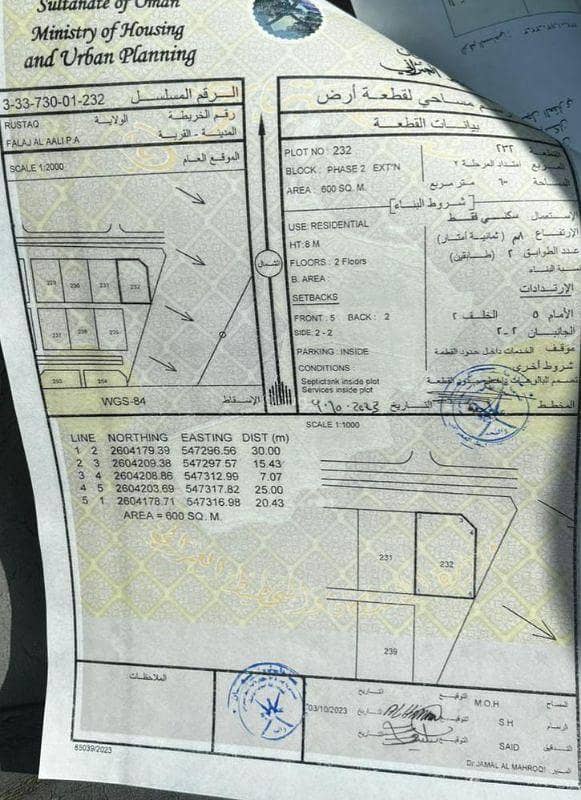 Sultanate of Oman
Ministry of Housing
and Urban Planning
3-33-730-01-232 الرقم المسلسل
رقم الخريطة
RUSTAQ الولاية
FALAJ AL AALI P A المدينة - القرية
SCALE 1:2000 الموقع العام
229 230 231 232
237 238 239
253 254
WGS-84 الإسقاط
الشمال
مساحي لقطعة أرض
بيانات القطعة
PLOT NO : 232 ٢٣٢
BLOCK : PHASE 2 EXT'N امتداد المرحلة ٢
AREA : 600 SQ. M. المساحة ٦٠٠ متر مربع
شروط البناء
USE: RESIDENTIAL سكني فقط
HT:8 M الإرتفاع ٨م (ثمانية أمتار)
FLOORS : 2 Floors عدد الطوابق ٢ (طابقين)
B. AREA نسبة البناء
SETBACKS الإرتدادات
FRONT : 5 BACK : 2 الأمام ٥ الخلف ٢
SIDE: 2 - 2 الجانبان ٢-٢
PARKING : INSIDE موقف
CONDITIONS شروط أخرى
Septictank inside plot
Services inside plot الخدمات داخل حدود القطعة
المخطط التاريخ
SCALE 1:1000
LINE NORTHING EASTING DIST (m)
1 2 2604179.39 547296.56 30.00
2 3 2604209.38 547297.57 15.43
3 4 2604208.86 547312.99 7.07
4 5 2604203.69 547317.82 25.00
5 1 2604178.71 547316.98 20.43
AREA = 600 SQ. M.
231
232
3
4
239
الملاحظات
M.O.H التوقيع التاريخ
03/10/2023
S.H التوقيع التاريخ الرسام
SAID التوقيع التاريخ
Dr JAMAL AL MAHROQI
65039/2023